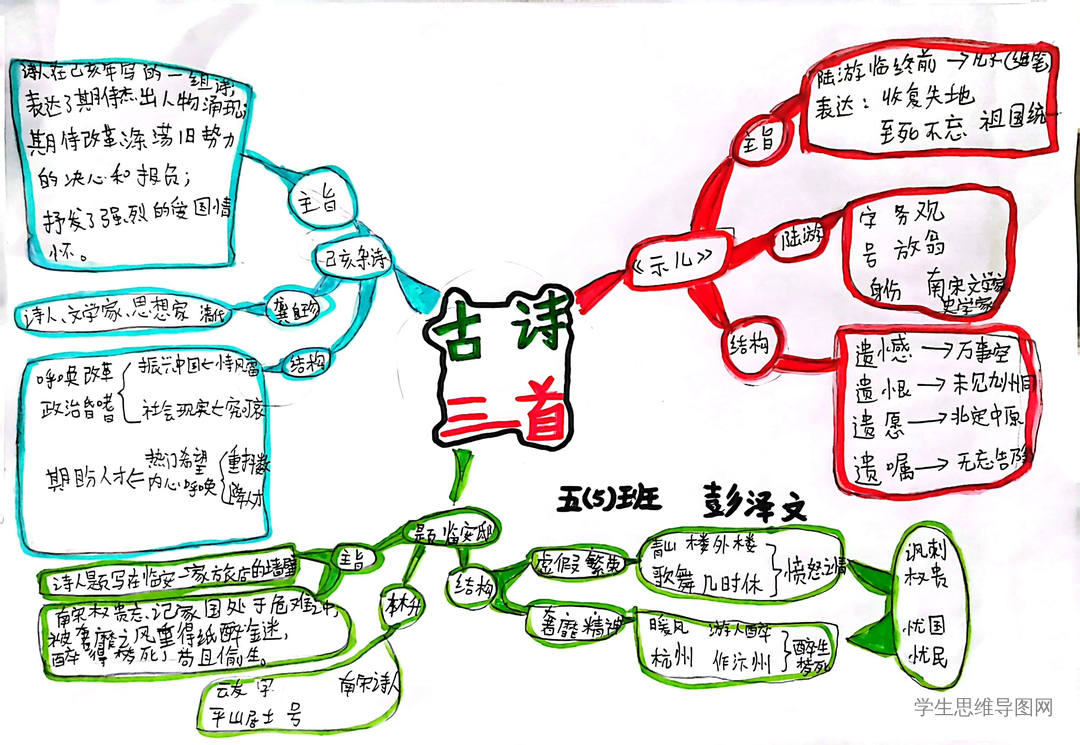 古诗
三首
《示儿》
主旨
陆游临终前→儿子(绝笔
表达：收复失地
至死不忘 祖国统一
陆游
字 务观
号 放翁
身份 南宋文学家
史学家
结构
遗憾→万事空
遗恨→未见九州同
遗愿→北定中原
遗嘱→无忘告
己亥杂诗
主旨
诗人在己亥年写的一组诗,
表达了期待杰出人物涌现;
期待改革涤荡旧势力
的决心和抱负;
抒发了强烈的爱国情
怀。
龚自珍
诗人、文学家、思想家 清代
结构
呼唤改革
政治昏暗
振兴中国七恃风雷
社会现实七究可哀
期盼人才
热门希望
内心呼唤
重抖擞
降人才
题临安邸
主旨
诗人题写在临安一家旅店的墙壁
南宋权贵忘记家国处于危难中,
被奢靡之风熏得纸醉金迷,
醉得梦死,苟且偷生。
林升
云友 字 南宋诗人
平山居士 号
结构
虚假繁荣
青山 楼外楼
歌舞 几时休
愤怒之情
奢靡精神
暖风 游人醉
杭州 作汴州
醉生
梦死
讽刺
权贵
忧国
忧民
五(5)班 彭泽文
学生思维导图网